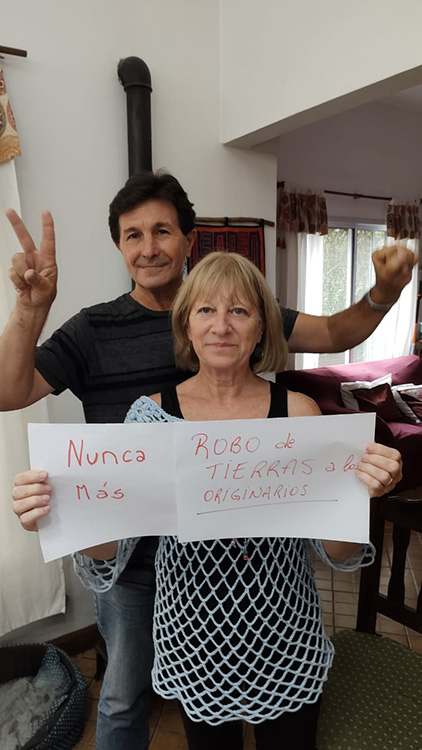 Nunca
Más
ROBO de
TIERRAS a los
ORIGINARIOS